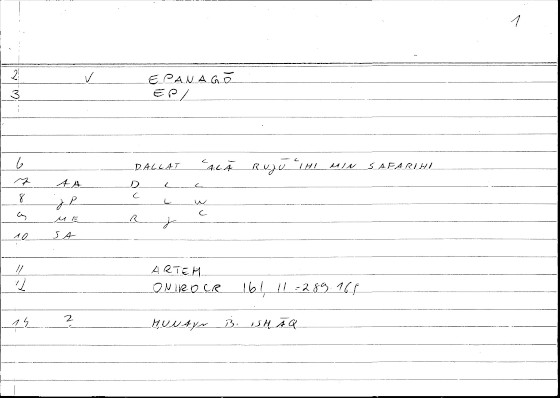 1
2 V EPANAGŌ
3 EP/
6 DALLAT ʿALĀ RUJŪʿIHI MIN SAFARIHI
7 AA D L L
8 JP ʿ L W
9 ME R J ʿ
10 SA
11 ARTEM
12 ONIROCR 161, 11 = 289
14 ? ḤUNAYN B. ISḤĀQ